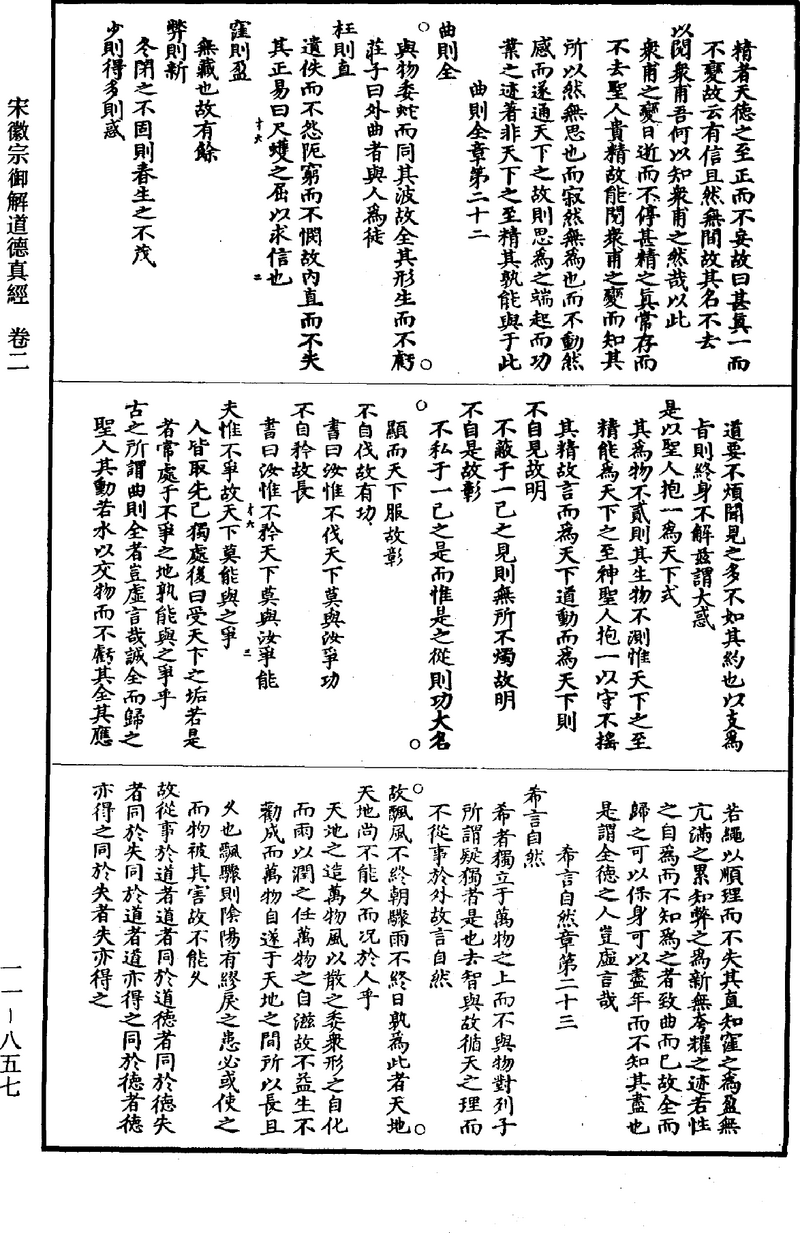 精者天德之至正而不妄故曰甚真一而
不變故云有信且然無間故其名不去
以閱衆甫吾何以知衆甫之然哉以此
衆甫之變日逝而不停甚精之真常存而
不去聖人貴精故能閱衆甫之變而知其
所以然無思也而寂然無爲也而不動然
感而遂通天下之故則思爲之端起而功
業之迹著非天下之至精其孰能與于此
曲則全章第二十二
曲則全
與物委蛇而同其波故全其形生而不虧
莊子曰外曲者與人爲徒
枉則直
遺佚而不怨阨窮而不憫故內直而不失
其正易曰尺蠖之屈以求信也
十六 二
窪則盈
無藏也故有餘
弊則新
冬閉之不固則春生之不茂
少則得多則惑
道要不煩聞見之多不如其約也以支爲
旨則終身不解茲謂大惑
是以聖人抱一爲天下式
其爲物不貳則其生物不測惟天下之至
精能爲天下之至神聖人抱一以守不搖
其精故言而爲天下道動而爲天下則
不自見故明
不蔽于一己之見則無所不燭故明
不自是故彰
不私于一己之是而惟是之從則功大名
顯而天下服故彰
不自伐故有功
書曰汝惟不伐天下莫與汝爭功
不自矜故長
書曰汝惟不矜天下莫與汝爭能
十六 三
夫惟不爭故天下莫能與之爭
人皆取先己獨處後曰受天下之垢若是
者常處于不爭之地孰能與之爭乎
古之所謂曲則全者豈虛言哉誠全而歸之
聖人其動若水以交物而不虧其全其應
若繩以順理而不失其直知窪之爲盈無
亢滿之累知弊之爲新無夸耀之迹若性
之自爲而不知爲之者致曲而已故全而
歸之可以保身可以盡年而不知其盡也
是謂全德之人豈虛言哉
希言自然章第二十三
希言自然
希者獨立于萬物之上而不與物對列子
所謂疑獨者是也去智與故循天之理而
不從事於外故言自然
故飄風不終朝驟雨不終日孰爲此者天地
天地尚不能久而況於人乎
天地之造萬物風以散之委衆形之自化
而雨以潤之任萬物之自滋故不益生不
勸成而萬物自遂于天地之間所以長且
久也飄驟則陰陽有繆戾之患必或使之
而物被其害故不能久
故從事於道者道者同於道德者同於德失
者同於失同於道者道亦得之同於德者德
亦得之同於失者失亦得之
宋徽宗御解道德真經　卷二
一一－八五七